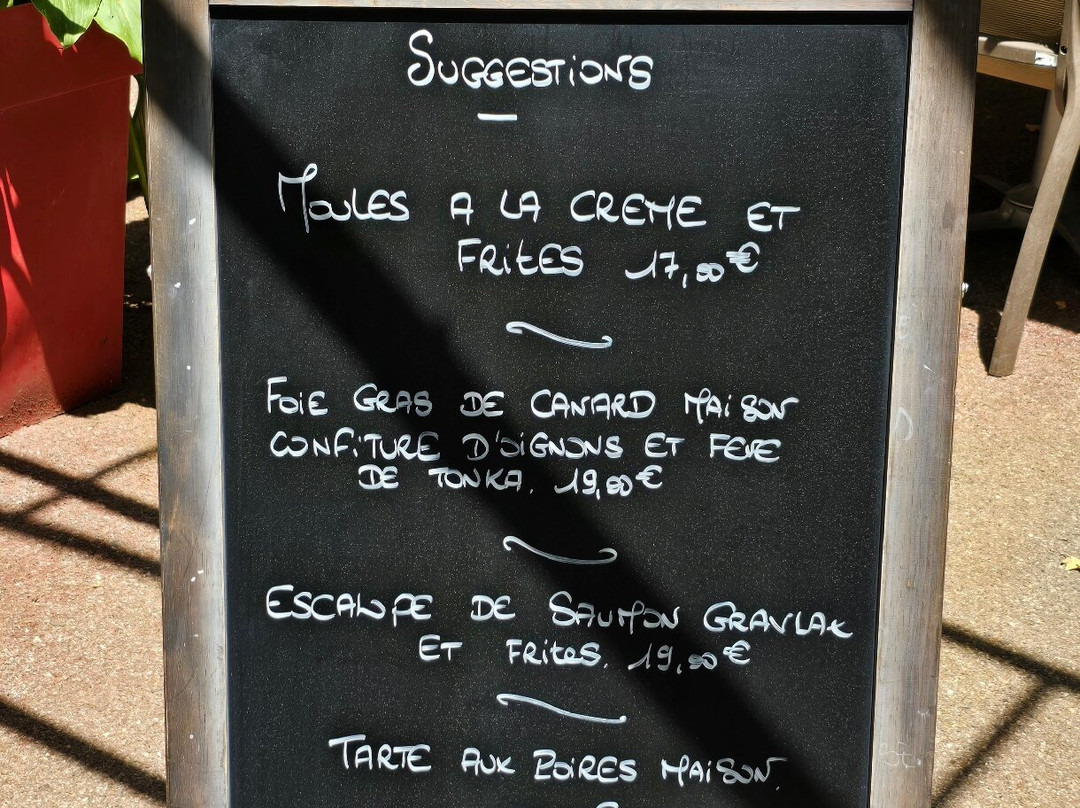 SUGGESTIONS
MOULES A LA CREME ET
FRITES 17,00€
FOIE GRAS DE CANARD MAISON
CONFITURE D'OIGNONS ET FEVE
DE TONKA. 19,00€
ESCALOPE DE SAUMON GRAVLAX
ET FRITES. 19,00€
TARTE AUX POIRES MAISON.